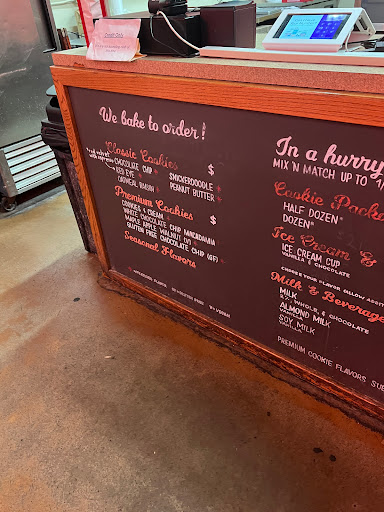 We bake to order!
Classic Cookies $
CHOCOLATE CHIP
SNICKERDOODLE
RED EYE
PEANUT BUTTER
OATMEAL RAISIN
Premium Cookies $
COOKIES & CREAM
WHITE CHOCOLATE CHIP MACADAMIA
MAPLE APPLE WALNUT (V)
GLUTEN FREE CHOCOLATE CHIP (GF)
Seasonal Flavors
In a hurry
MIX 'N MATCH UP TO
Cookie Pack
HALF DOZEN*
DOZEN*
Ice Cream &
ICE CREAM CUP
VANILLA & CHOCOLATE
CHOOSE YOUR FLAVOR (ALLOW
Milk & Beverage
MILK
2%, WHOLE, & CHOCOLATE
ALMOND MILK
SOY MILK
VANILLA
PREMIUM COOKIE FLAVORS